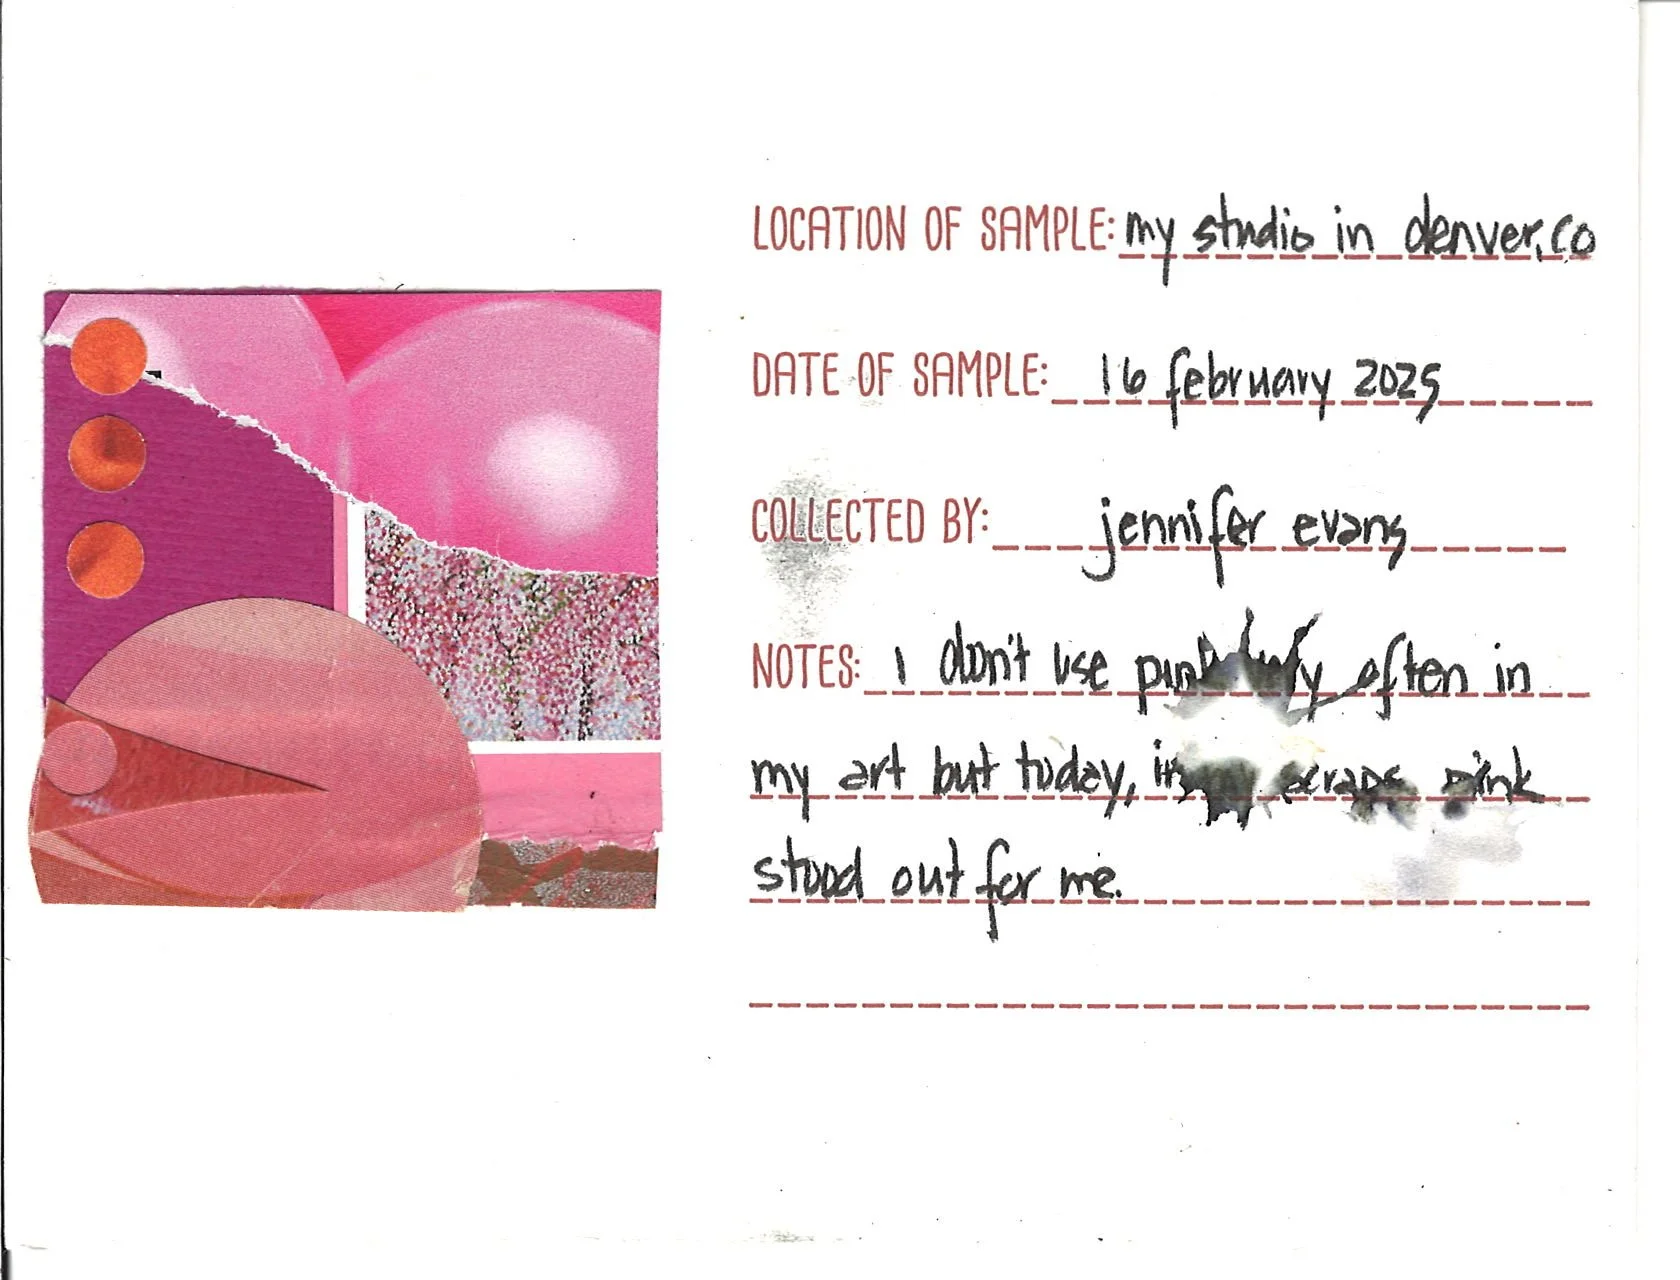 LOCATION OF SAMPLE: my studio in denver, co
DATE OF SAMPLE: 16 february 2025
COLLECTED BY: jennifer evans
NOTES: i don't use pink often in
my art but today, in scraps pink
stood out for me.